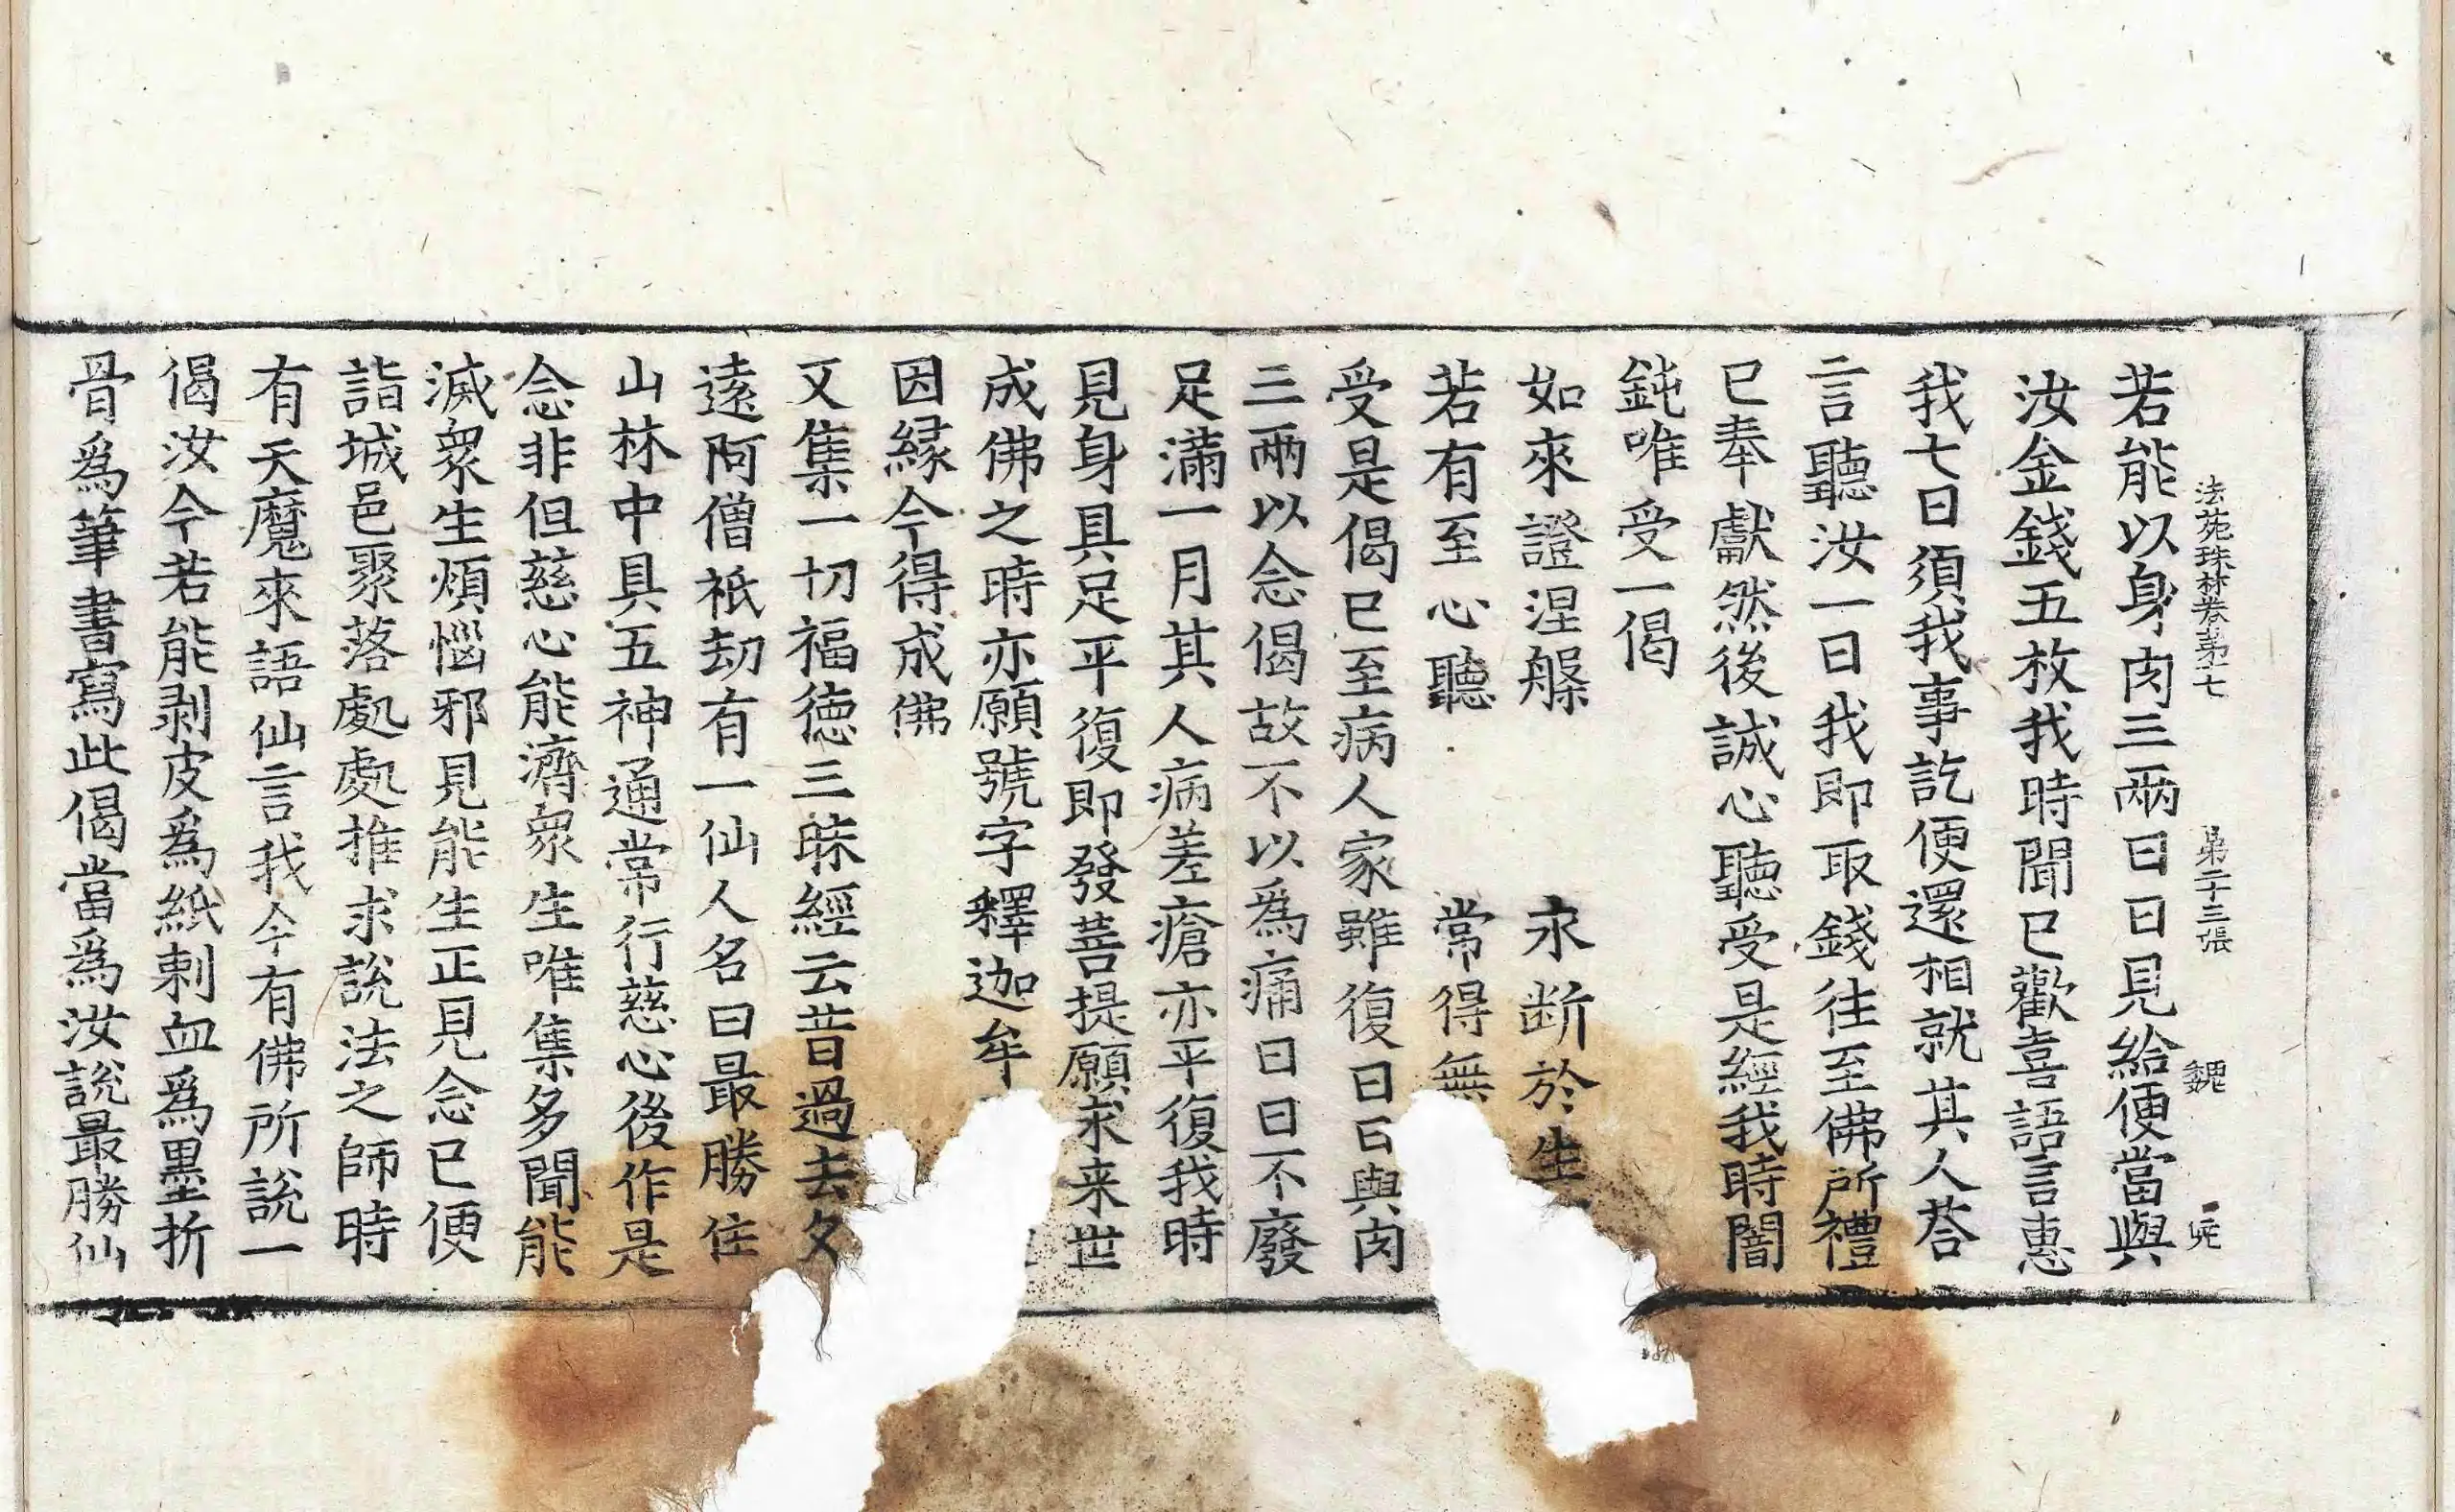 法苑珠林卷第十七　第二十三張　魏　㒫
若能以身肉三兩日日見給便當與
汝金錢五枚我時聞已歡喜語言惠
我七日須我事訖便還相就其人荅
言聽汝一日我即取錢往至佛所禮
已奉獻然後誠心聽受是經我時闇
鈍唯受一偈
如來證涅槃　永断於生
若有至心聽　常得無
受是偈已至病人家雖復日日與肉
三兩以念偈故不以為痛日日不廢
足滿一月其人病差瘡亦平復我時
見身具足平復即發菩提願求来世
成佛之時亦願號字釋迦牟
因縁今得成佛
又集一切福徳三昧經云昔過去久
遠阿僧祇劫有一仙人名曰最勝住
山林中具五神通常行慈心後作是
念非但慈心能濟衆生唯集多聞能
滅衆生煩惱邪見能生正見念已便
詣城邑聚落處處推求說法之師時
有天魔來語仙言我今有佛所說一
偈汝今若能剥皮爲紙刺血爲墨折
骨爲筆書寫此偈當爲汝說最勝仙